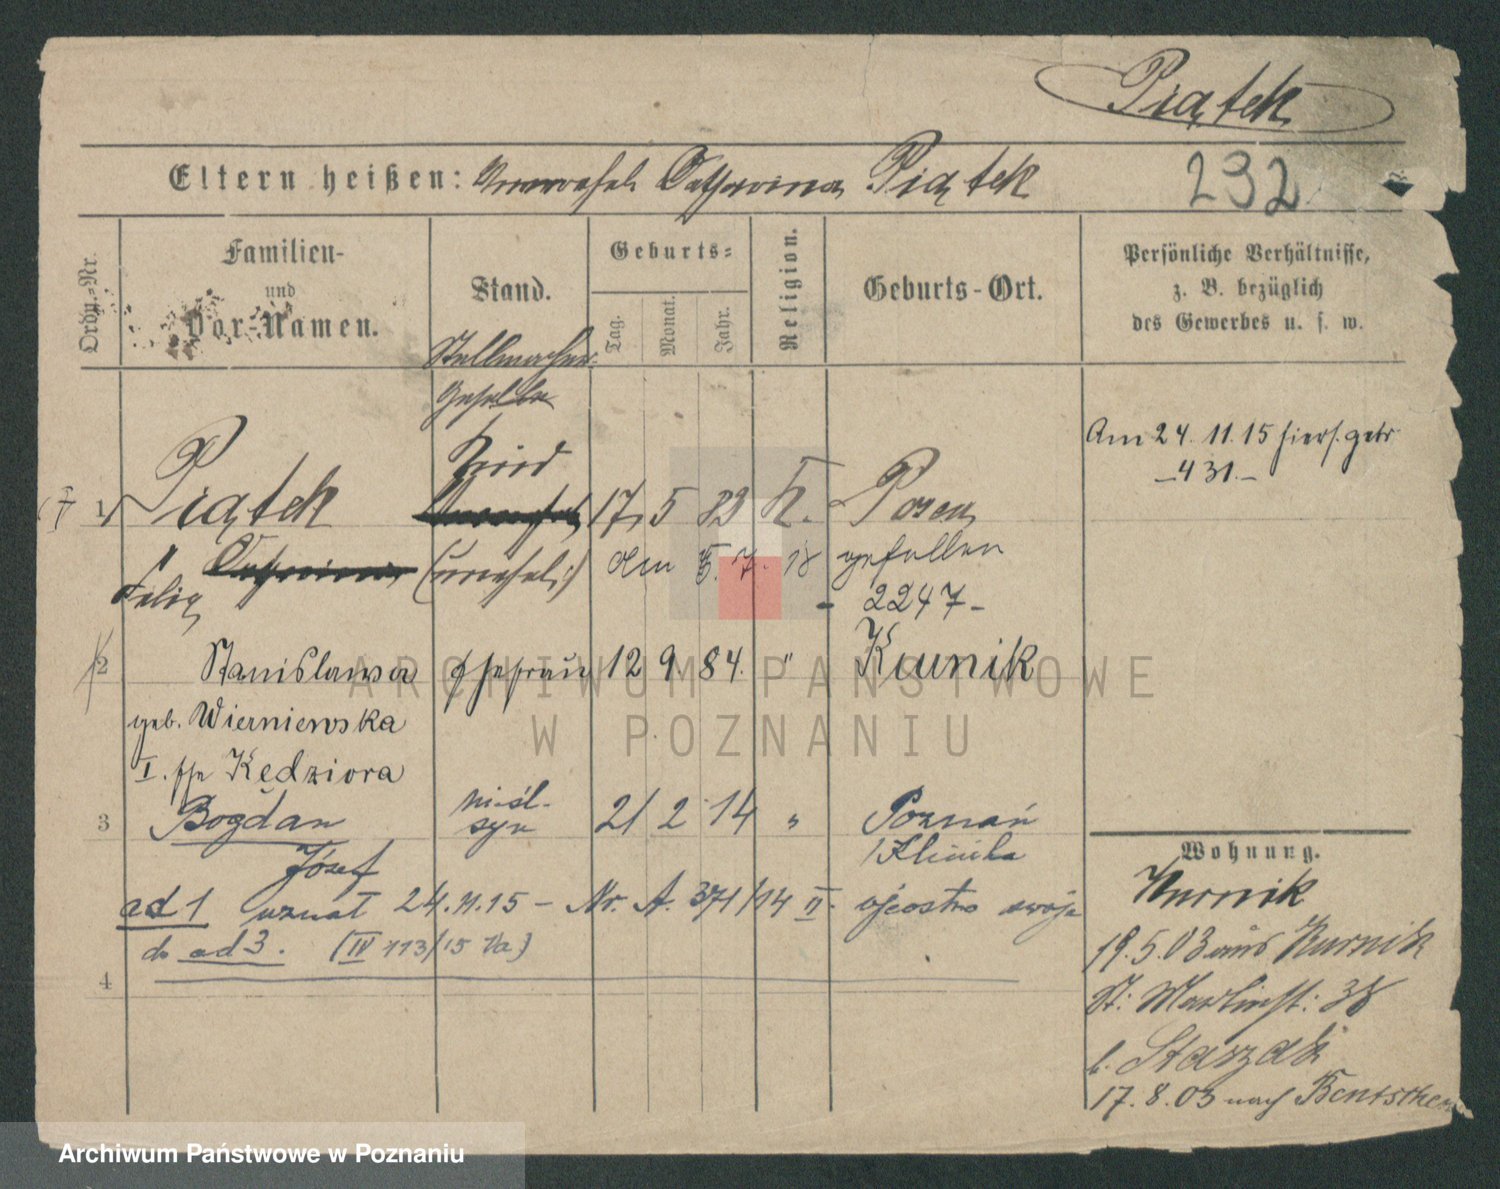 Piątek
Eltern heißen: Unverehel. Catharina Piątek
232
Ordn.-Nr.
Familien-
und
Vor-Namen.
Stand.
Geburts-
Tag.
Monat.
Jahr.
Religion.
Geburts-Ort.
Persönliche Verhältnisse,
z. B. bezüglich
des Gewerbes u. s. w.
Stellmacher
Geselle
Am 24.11.15 hiers. getr
-431.-
Kind
1 Piątek Unverehel. 17 5 83 K. Posen
Felix Catharina (unehel:) Am 5.7.18 gefallen
- 2247 -
2 Stanislawa Ehefrau 12 9. 84. " Kurnik
geb. Wierniewska
I. Ehe Kędziora
3 Bogdan nieśl. syn 21 2 14 " Poznań
Józef / Klinika
ad 1 uznał 24.11.15 - Nr. A. 371/14 II. ojcostwo swoje
do ad 3. (IV 113/15 Va)
4
Wohnung.
Kurnik
19.5.03 aus Kurnik
St: Martinst: 38
b. Starzak
17.8.03 nach Bentschen
ARCHIWUM PAŃSTWOWE
W POZNANIU
Archiwum Państwowe w Poznaniu